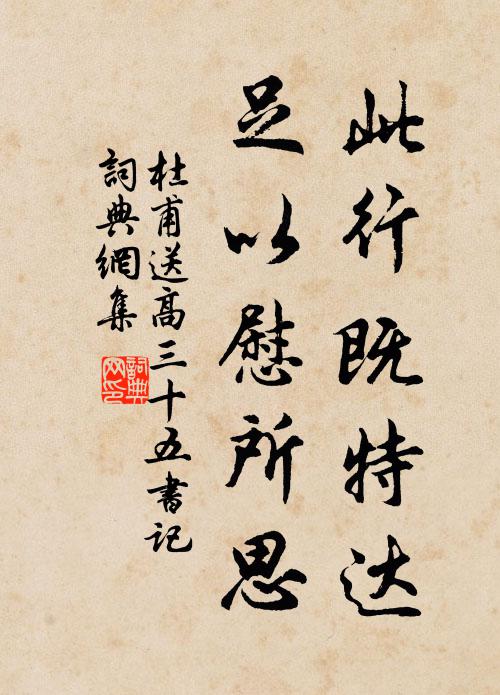 此行既特达
足以慰所思
杜甫送高三十五書记
詞典網集
詞典网印